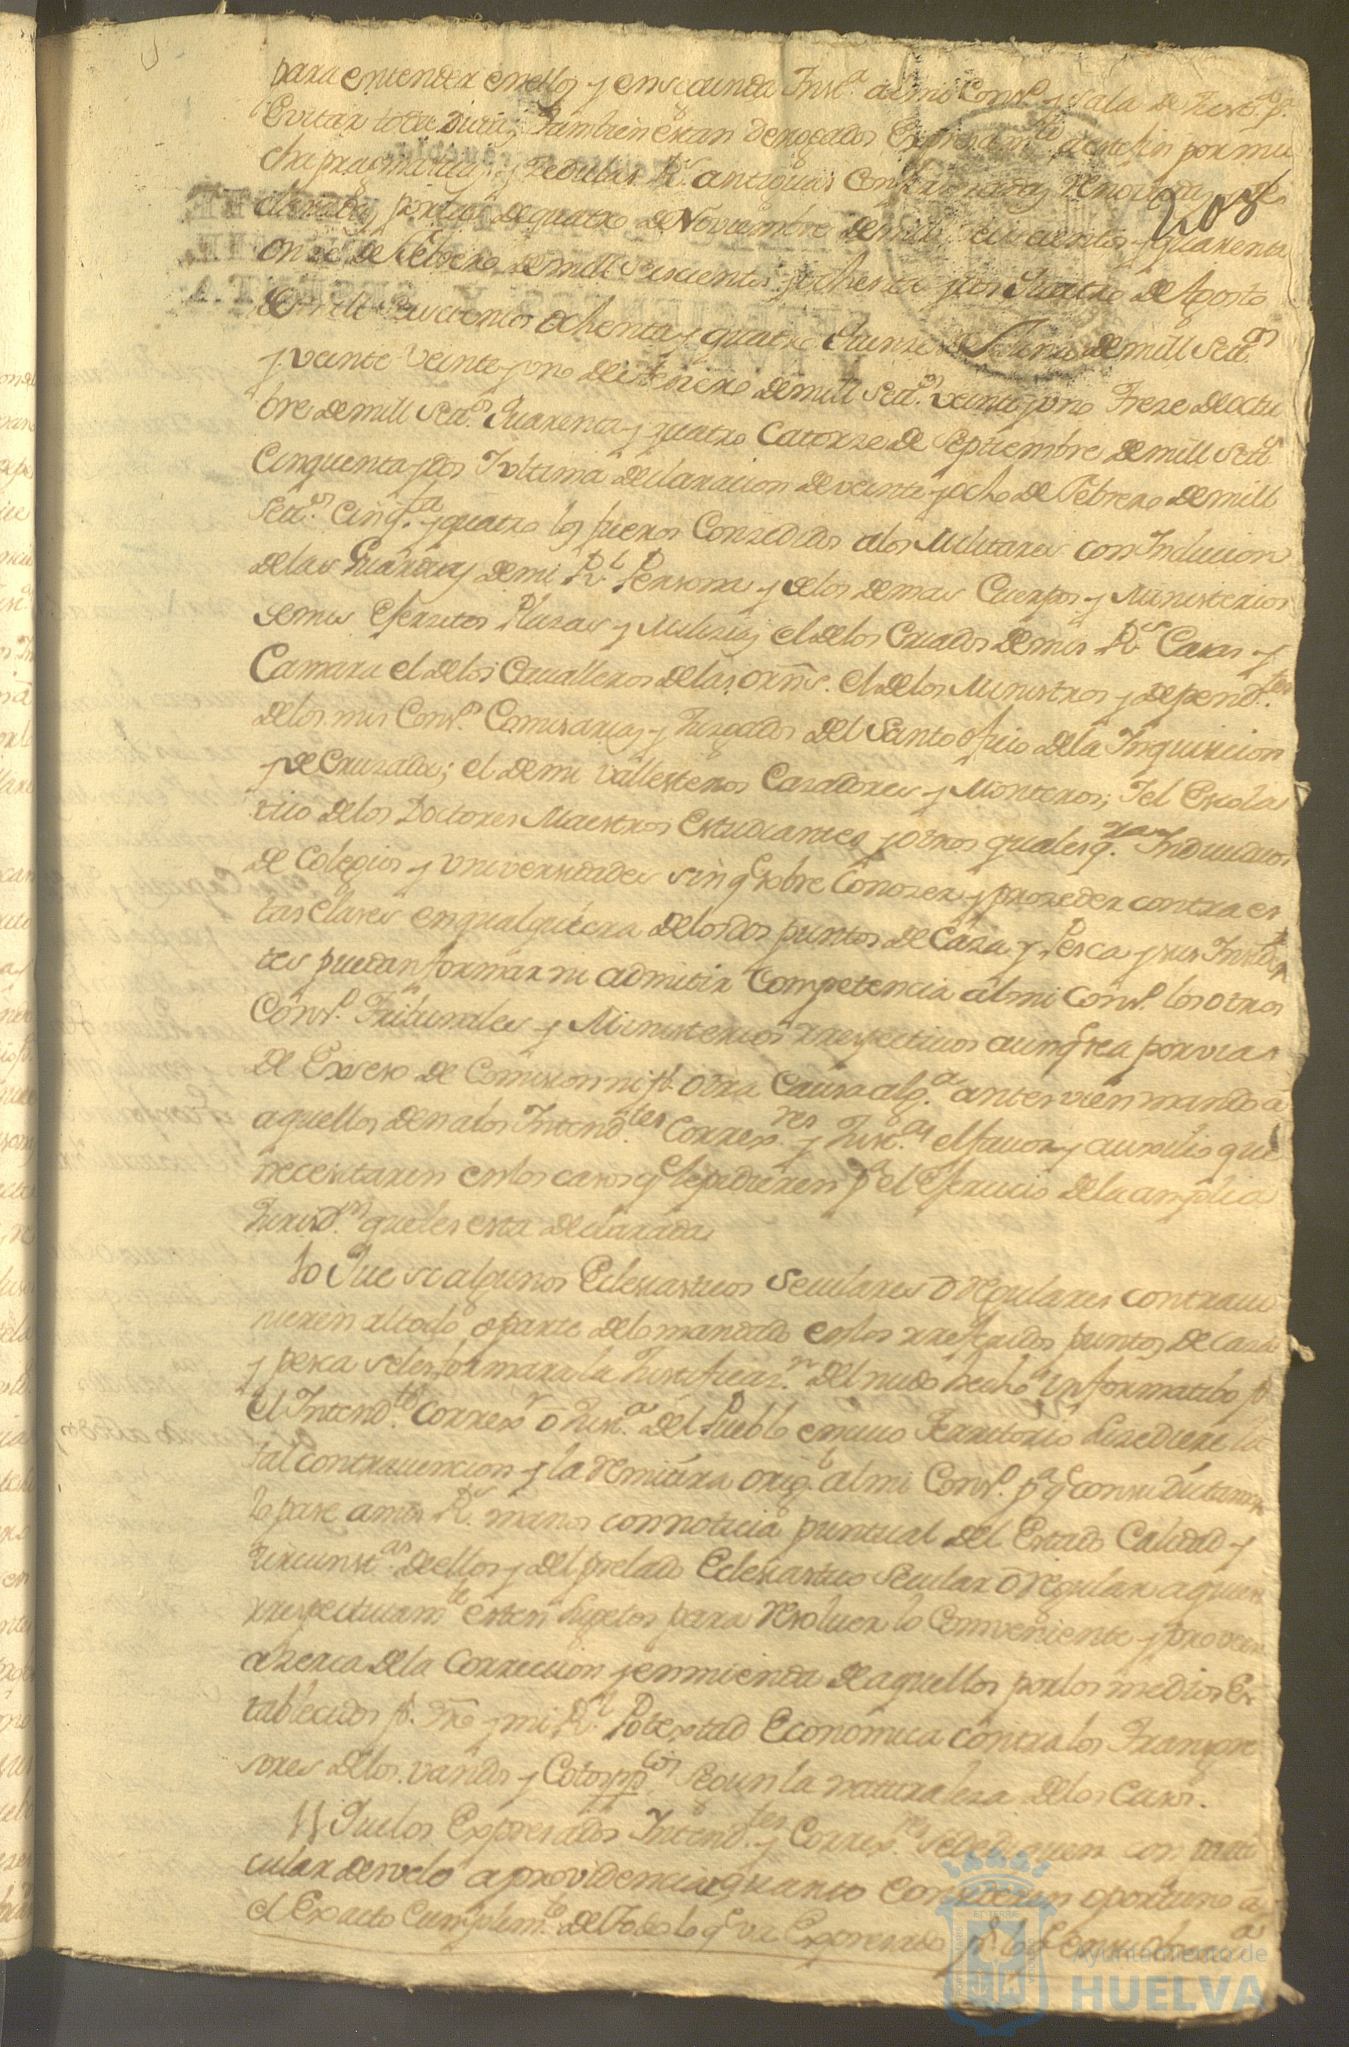 para entender en ellos y en segunda Inst.ª al mi Cons.º y Sala de Just.ª p.ª
evitar toda duda; tambien eran derogados expresam.te a este fin por mu
chas pragmaticas y Zedulas R.s antiguas renovadas
de quatro de Noviembre de mill seiscientos y quarenta
onze de Febrero de mill seiscientos y ochenta y dos quatro de Agosto
de mill seiscientos ochenta y quatro de Junio de mill Sett.os
y veinte veinte y uno de Febrero de mill Sett.os veinte y uno treze de octu
bre de mill Sett.os Quarenta y quatro catorze de Septiembre de mill Sett.os
Cinquenta y dos y ultima declaracion de veinte y ocho de Febrero de mill
Sett.os Cinq.ta y quatro los fueros Conzedidos a los Militares con Inclucion
de las Guardias de mi R.l Persona y de los demas Cuerpos y Ministerios
de mis Exerzitos Plazas y Milizias el de los Criados de mis R.s Casas y
Camara el de los Cavalleros de las orns. el de los Ministros y depend.tes
de los mis Cons.os Comisarias y Juzgados del Santo ofizio de la Inquisicion
y de Cruzada; el de mi Vallesteros Cazadores y Monteros; Y el Escolas
tico de los Doctores Maestros Estudiantes y otros qualesq.ra Individuos
de Colegios y Universidades sin q.e sobre Conozer y prozeder contra es
tas Clases en qualquiera de los dos puntos de Caza y Pesca y sus Insid.n
tes puedan formar ni admitir Competencia al mi Cons.º los otros
Cons.os Tribunales y Ministerios rrespectivos aunq.e sea por via
de Exseso de Comision ni p.r otra Causa alg.ª antes vien mando a
aquellos den a los Intend.tes Correx.res y Just.as el favor y auxilio que
necesitaren en los casos q.e le pidieren p.ª el Exercicio de la amplia
Jurisd.n que les esta declarada
10 Que si algunos Eclesiasticos Seculares ò regulares contravi
nieren al todo o parte de lo mandado en los rreferidos puntos de caza
y pesca se les formara la Justificaz.n del nudo hecho informatibo p.r
el Intend.te Correx.r ò Just.ª del Pueblo en cuio Territorio suzediere la
tal contravencion y la remitira orig.l al mi Cons.º p.ª q.e con su dictamen
lo pase a mis R.s manos con noticia puntual del Estado Calidad y
zircunst.as de ellos y del prelado Eclesiastico Secular ò regular a quien
rrespectivam.te esten sugetos para resolver lo Conveniente y proveer
a zerca de la Correccion y enmienda de aquellos por los medios Es
tablecidos p.r dro y mi R.l Potestad Economica contra los Transgre
sores de los vandos y Cotos pp.cos segun la naturaleza de los Casos.
11 Que los Expresados Intend.tes y Correx.res se dediquen con parti
cular desvelo a providenciar quanto consideren oportuno a
el Exacto Cumplim.to de todo lo q.e va Expresado
203
Ayuntamiento de
HUELVA